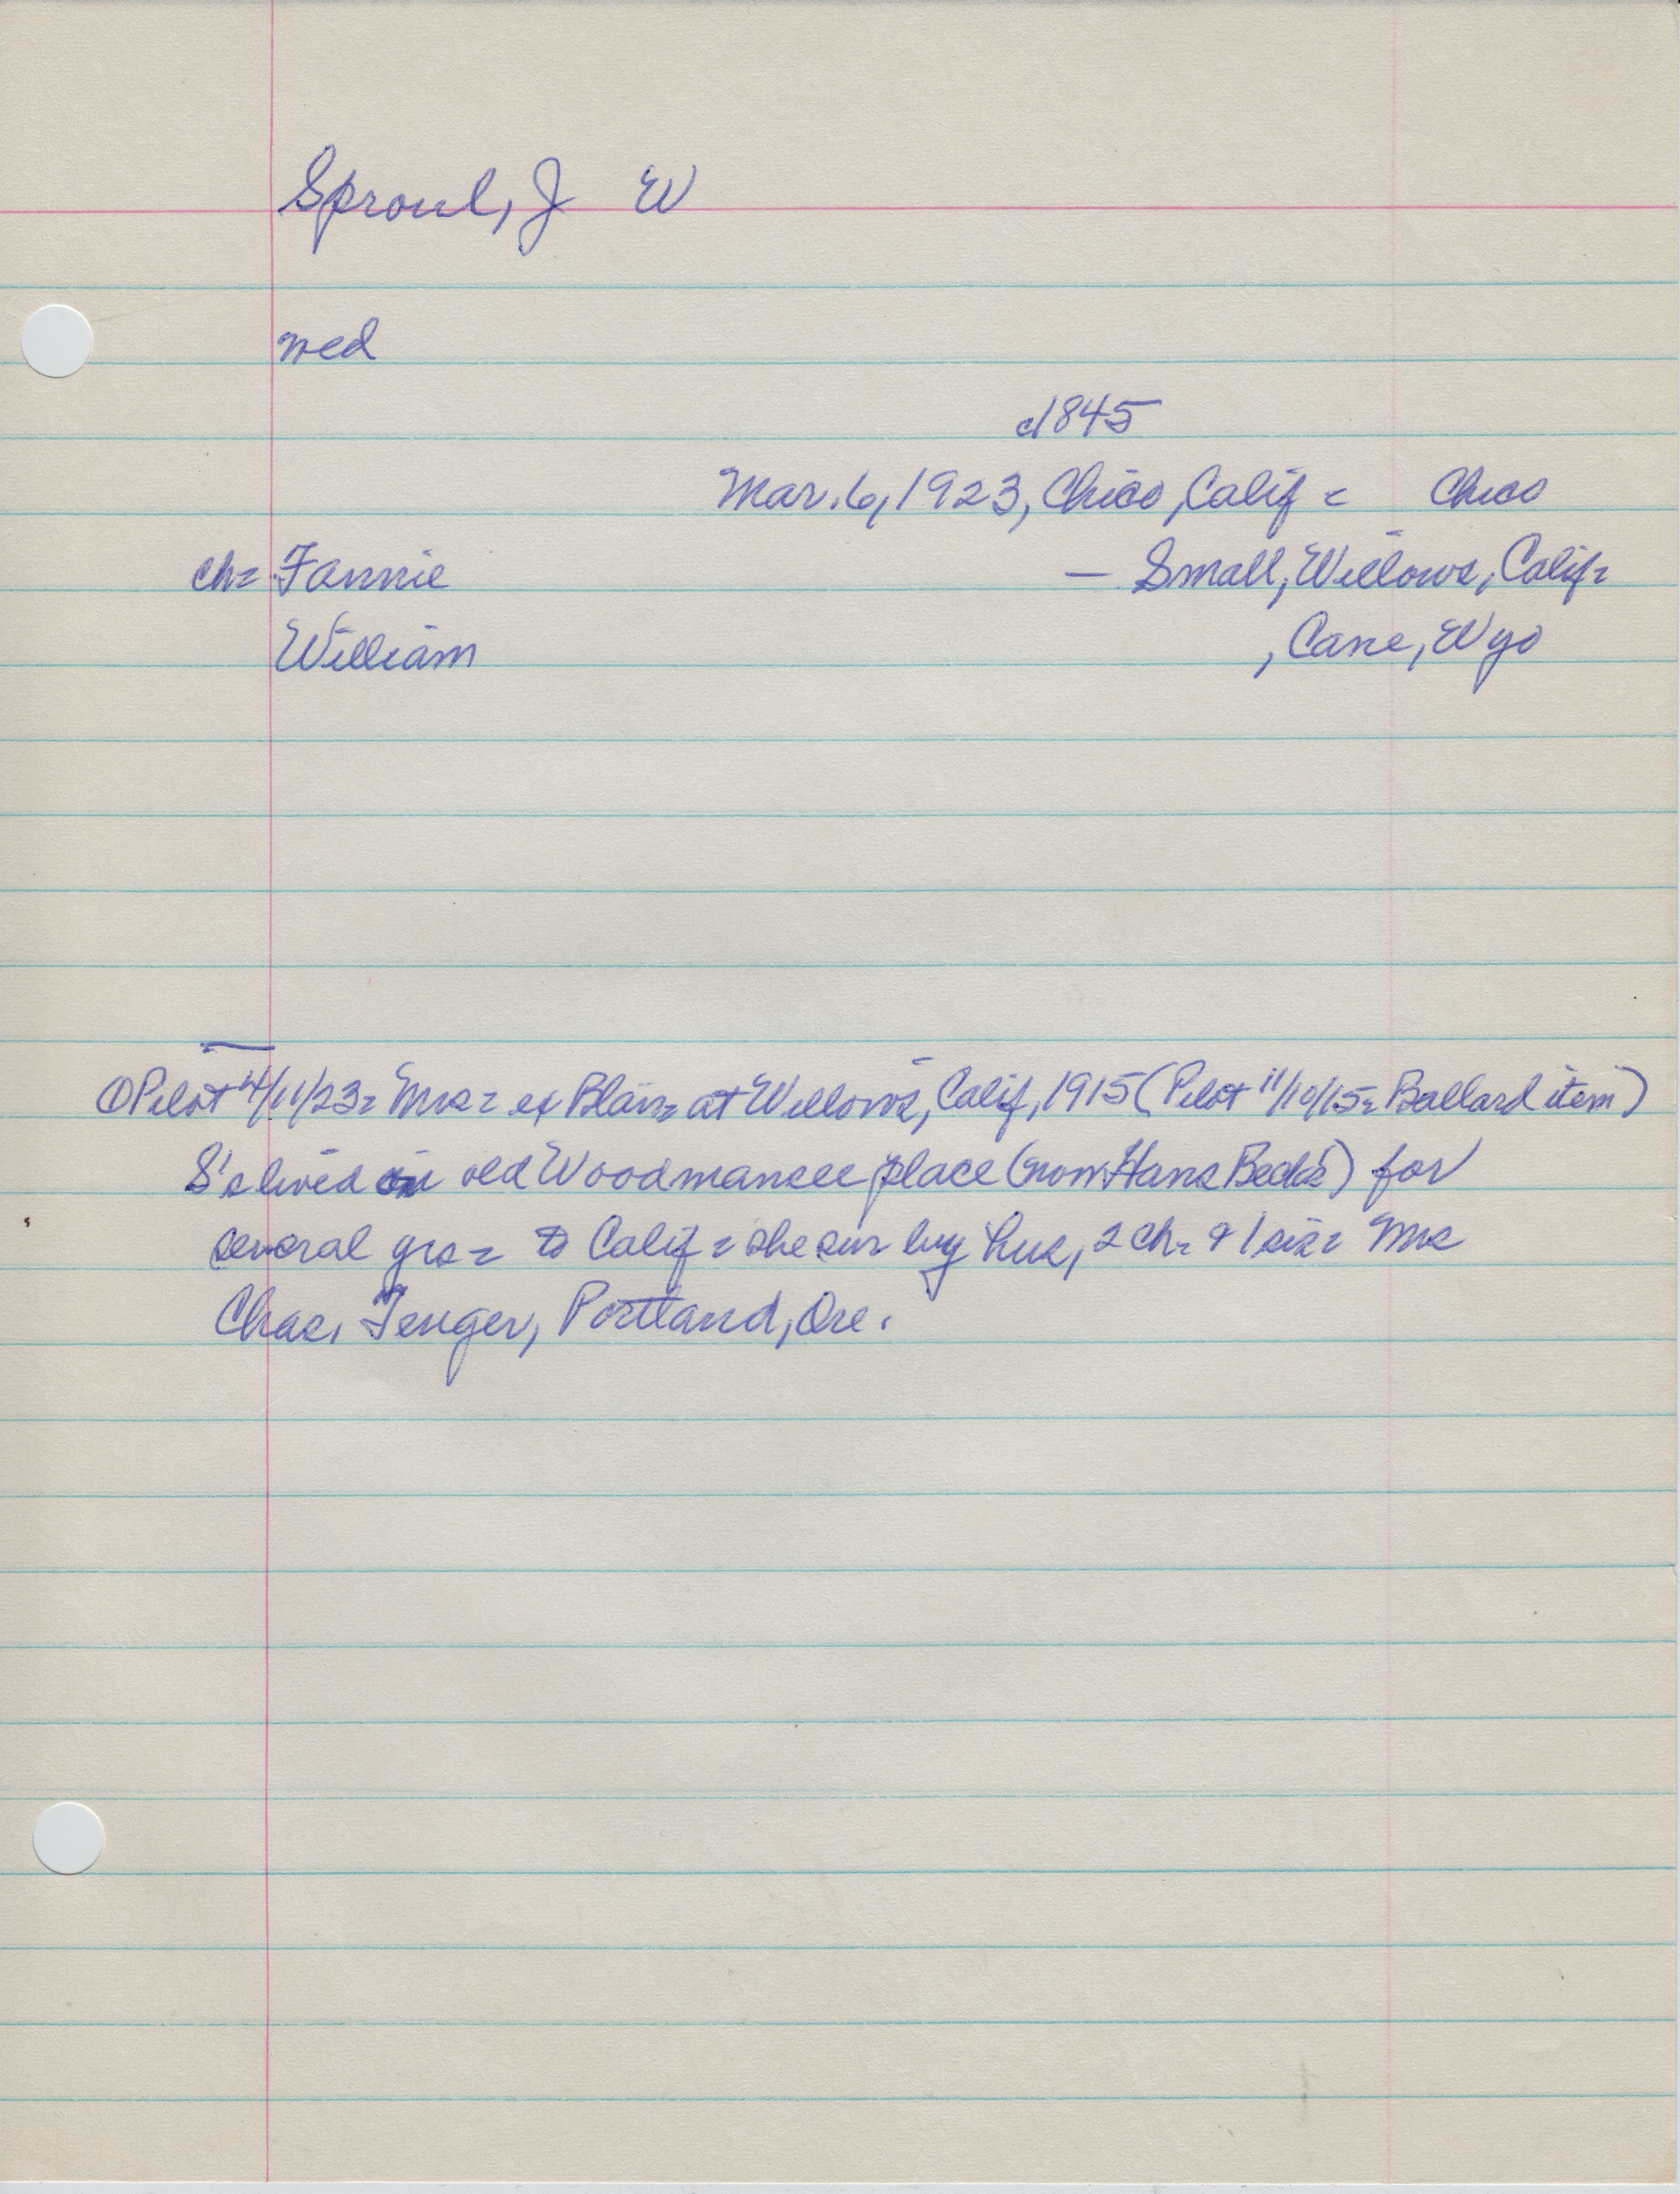 Sproul, J W
wed
c1845
Mar. 6, 1923, Chico, Calif = Chico
ch= Fannie — Small, Willows, Calif=
William , Cane, Wyo
① Pilot 4/11/23= Mrs= ex Blaine at Willows, Calif, 1915 (Pilot 11/10/15= Ballard item)
S's lived on old Woodmansee place (now Hans Beck's) for
several yrs= to Calif= she sur by hus, 2 ch= & 1 sis= Mrs
Chas. Portland, Ore.